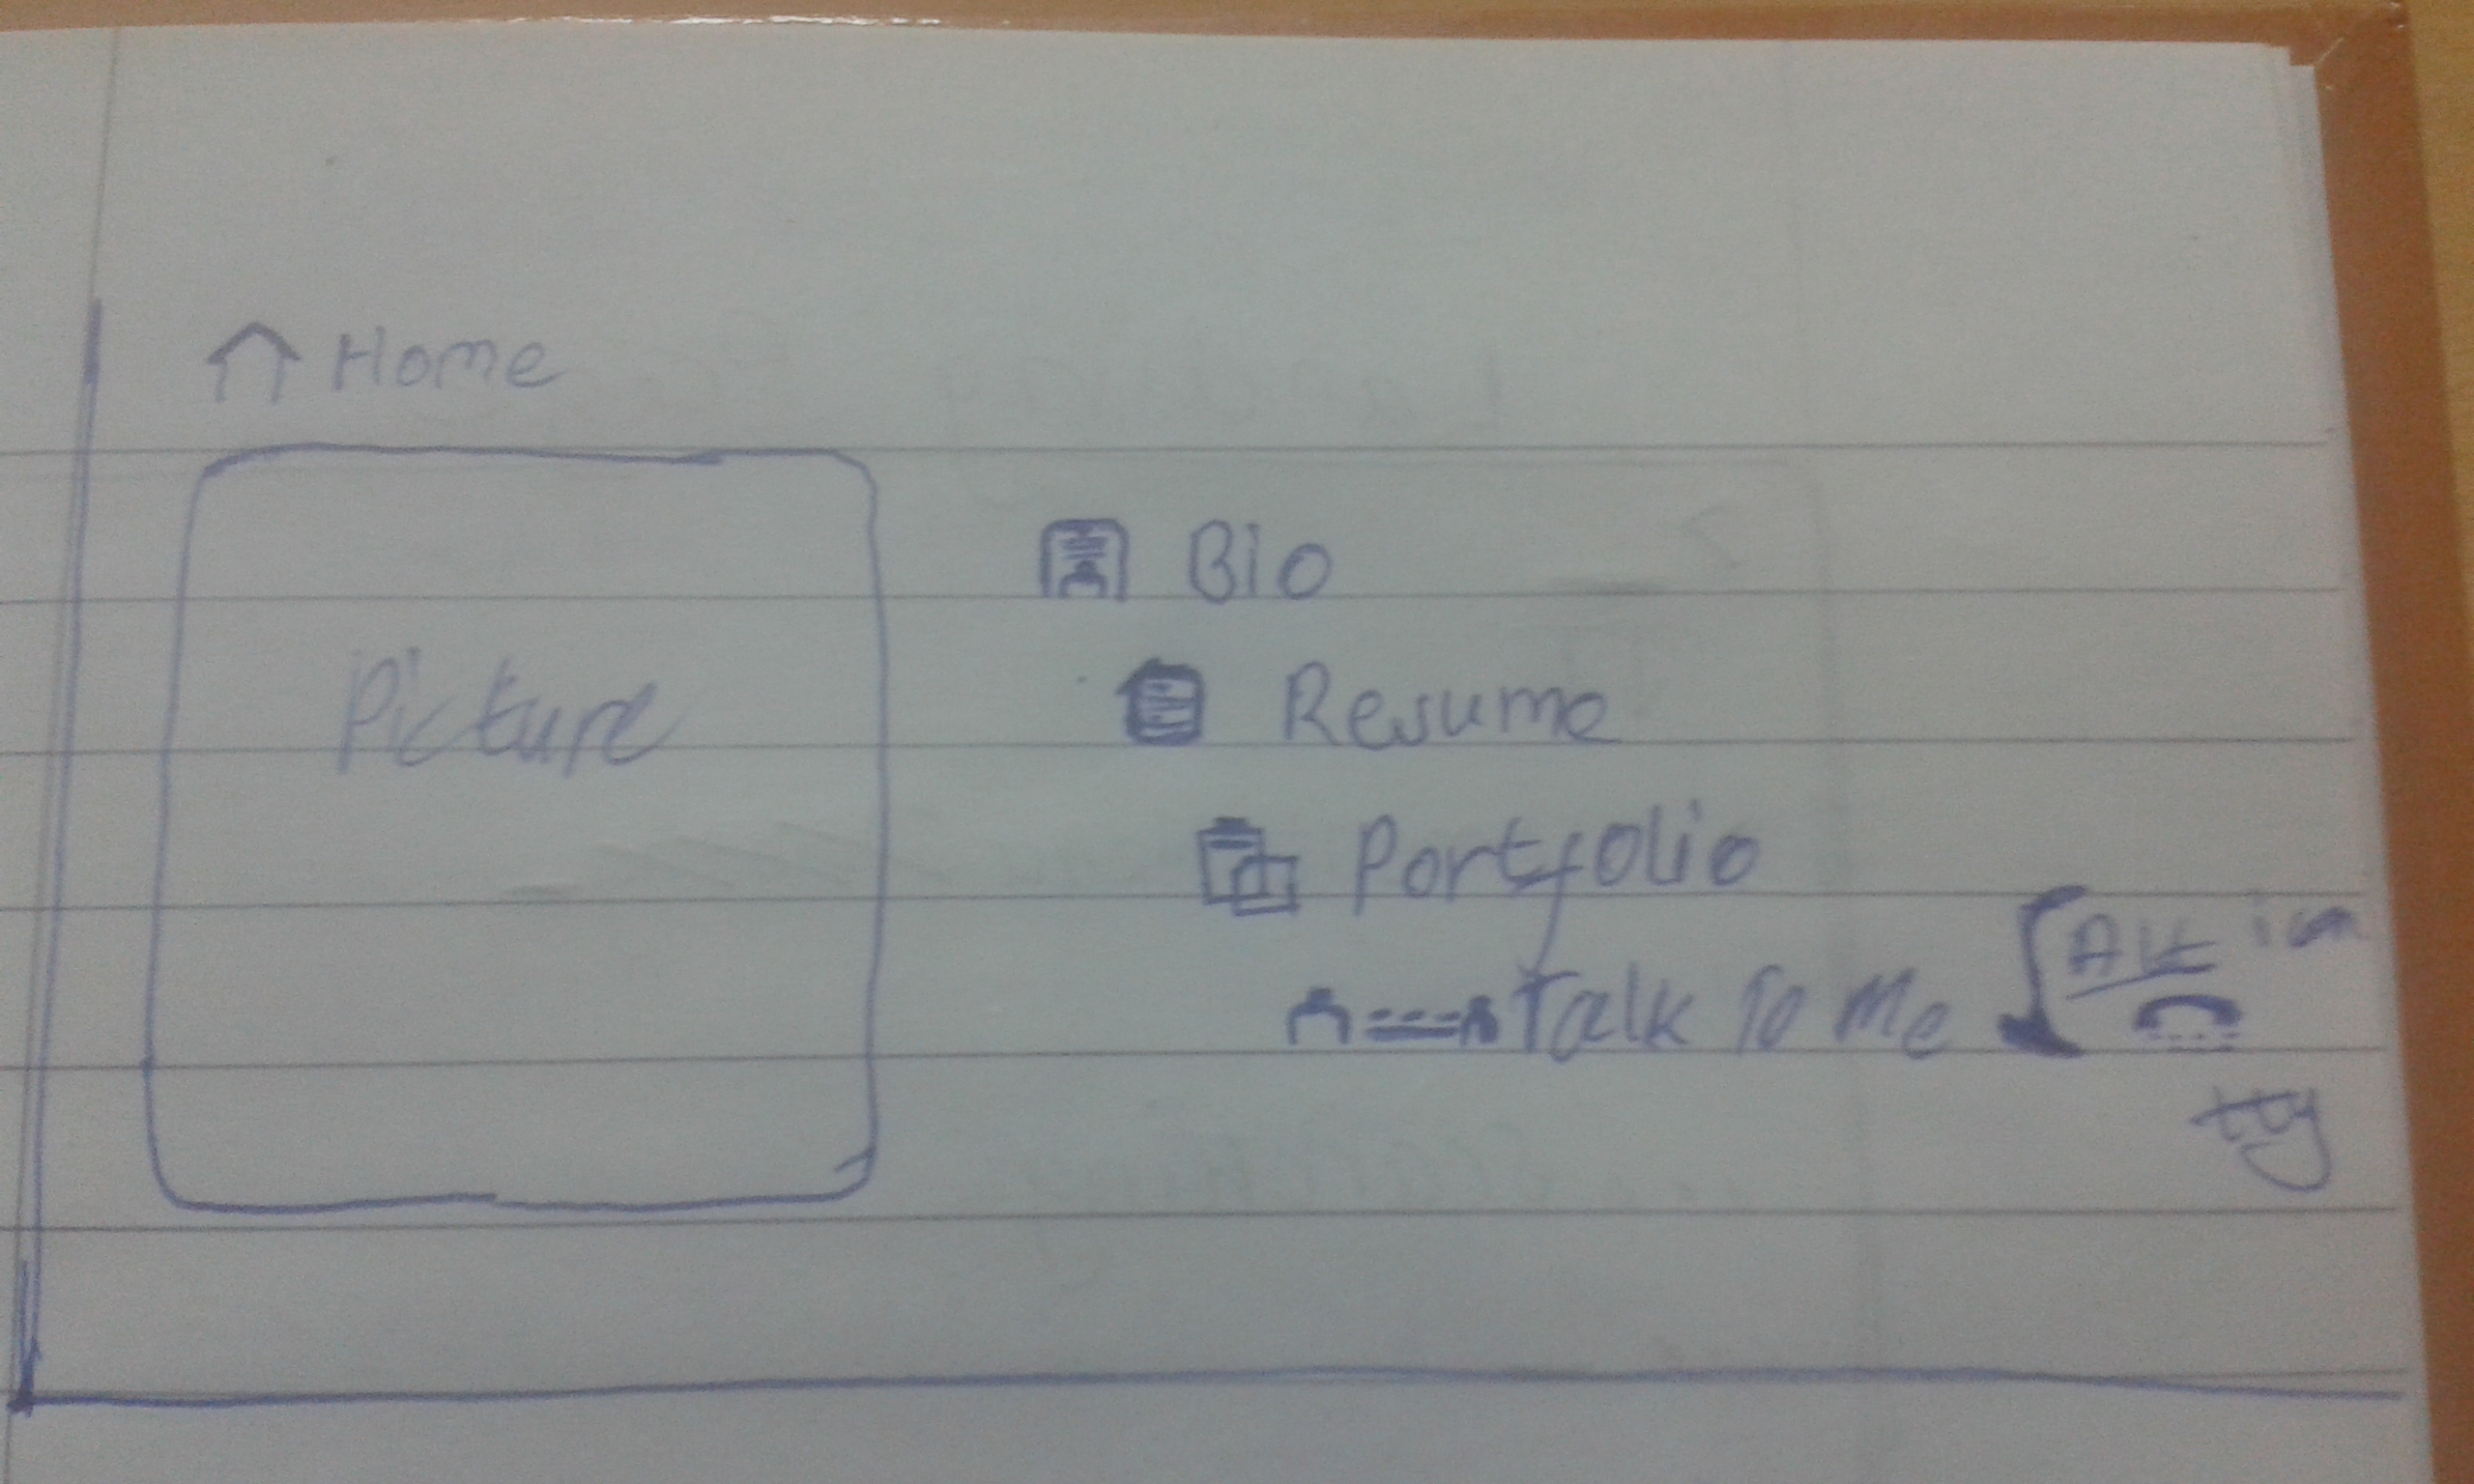 Home
Picture
Bio
Resume
Portfolio
Talk To Me
tty